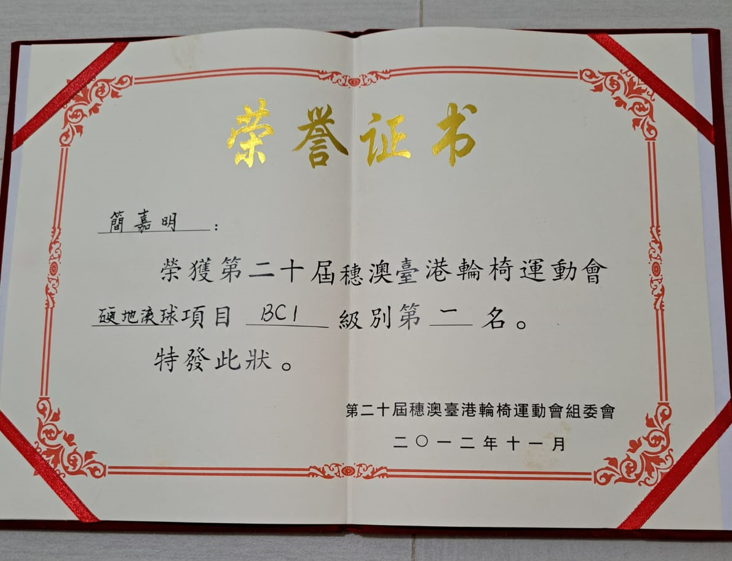 荣誉证书
簡嘉明:
榮獲第二十屆穗澳臺港輪椅運動會
硬地滾球項目 BC1 級別第二名。
特發此狀。
第二十屆穗澳臺港輪椅運動會組委會
二〇一二年十一月